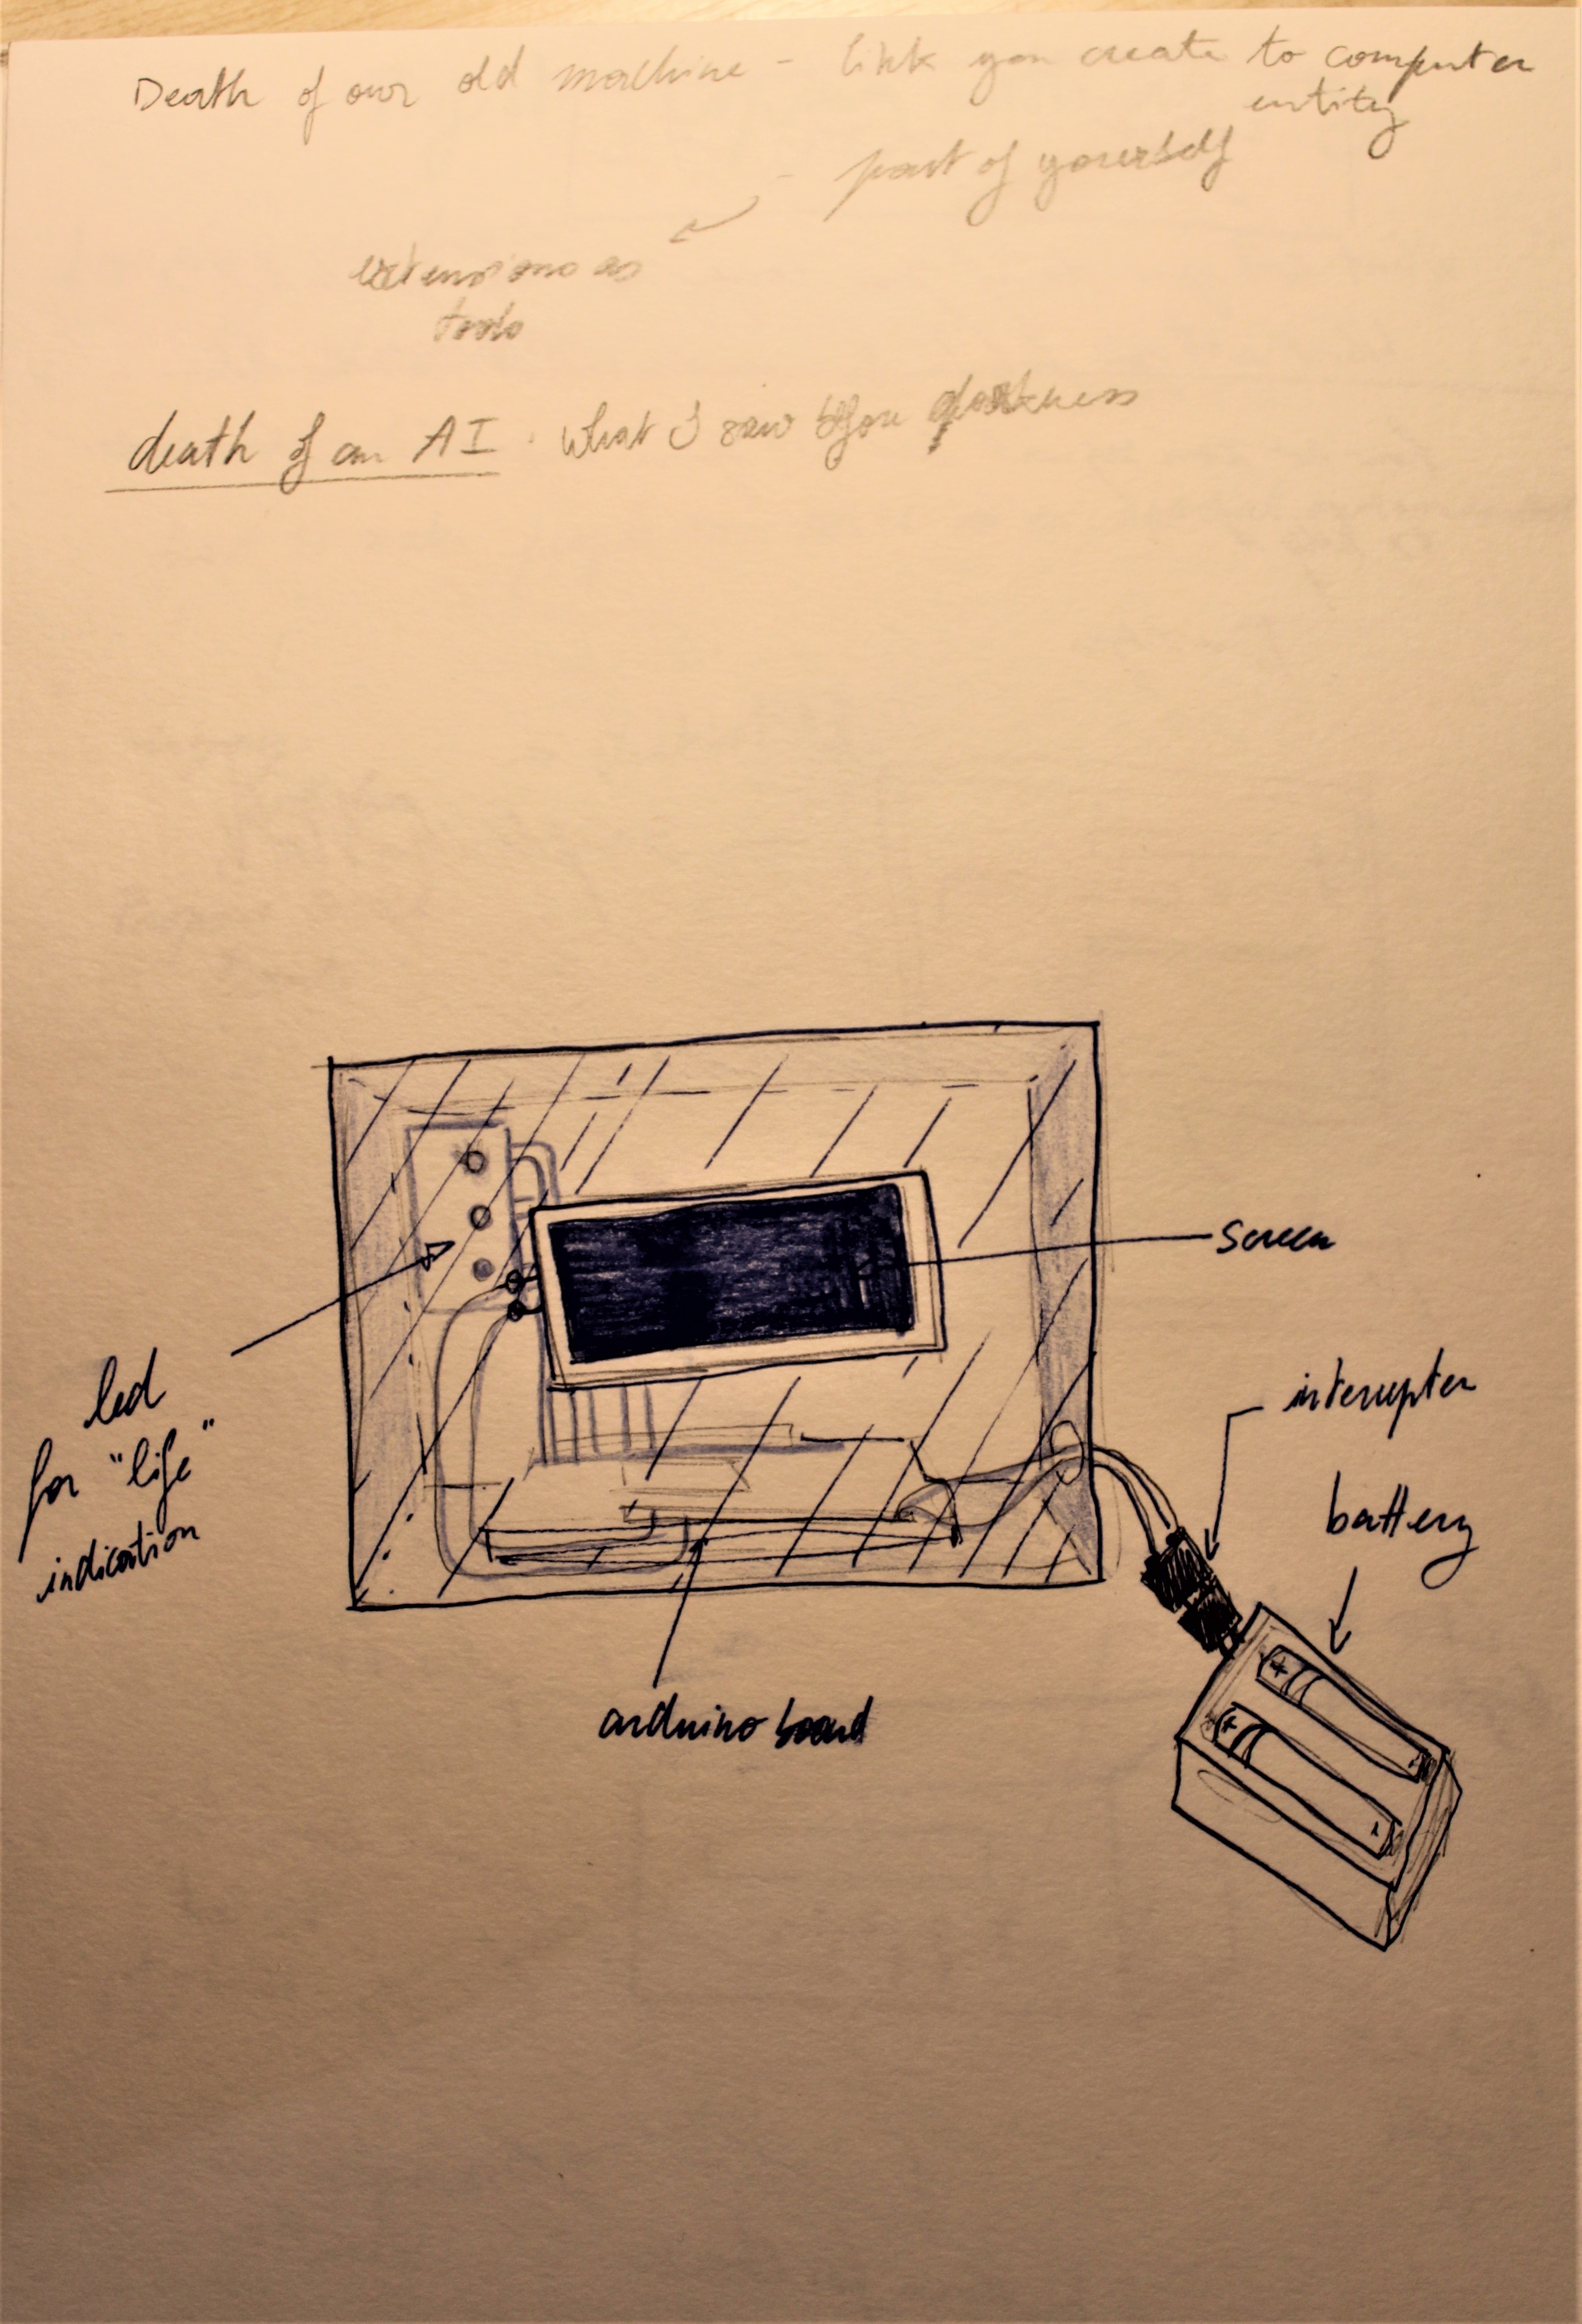 Death of our old machine - link you create to computer
entity
- part of yourself
extensions as
tools
death of an AI . What I saw before darkness
screen
led
for "life"
indication
interupter
battery
arduino board
+
+
-
-